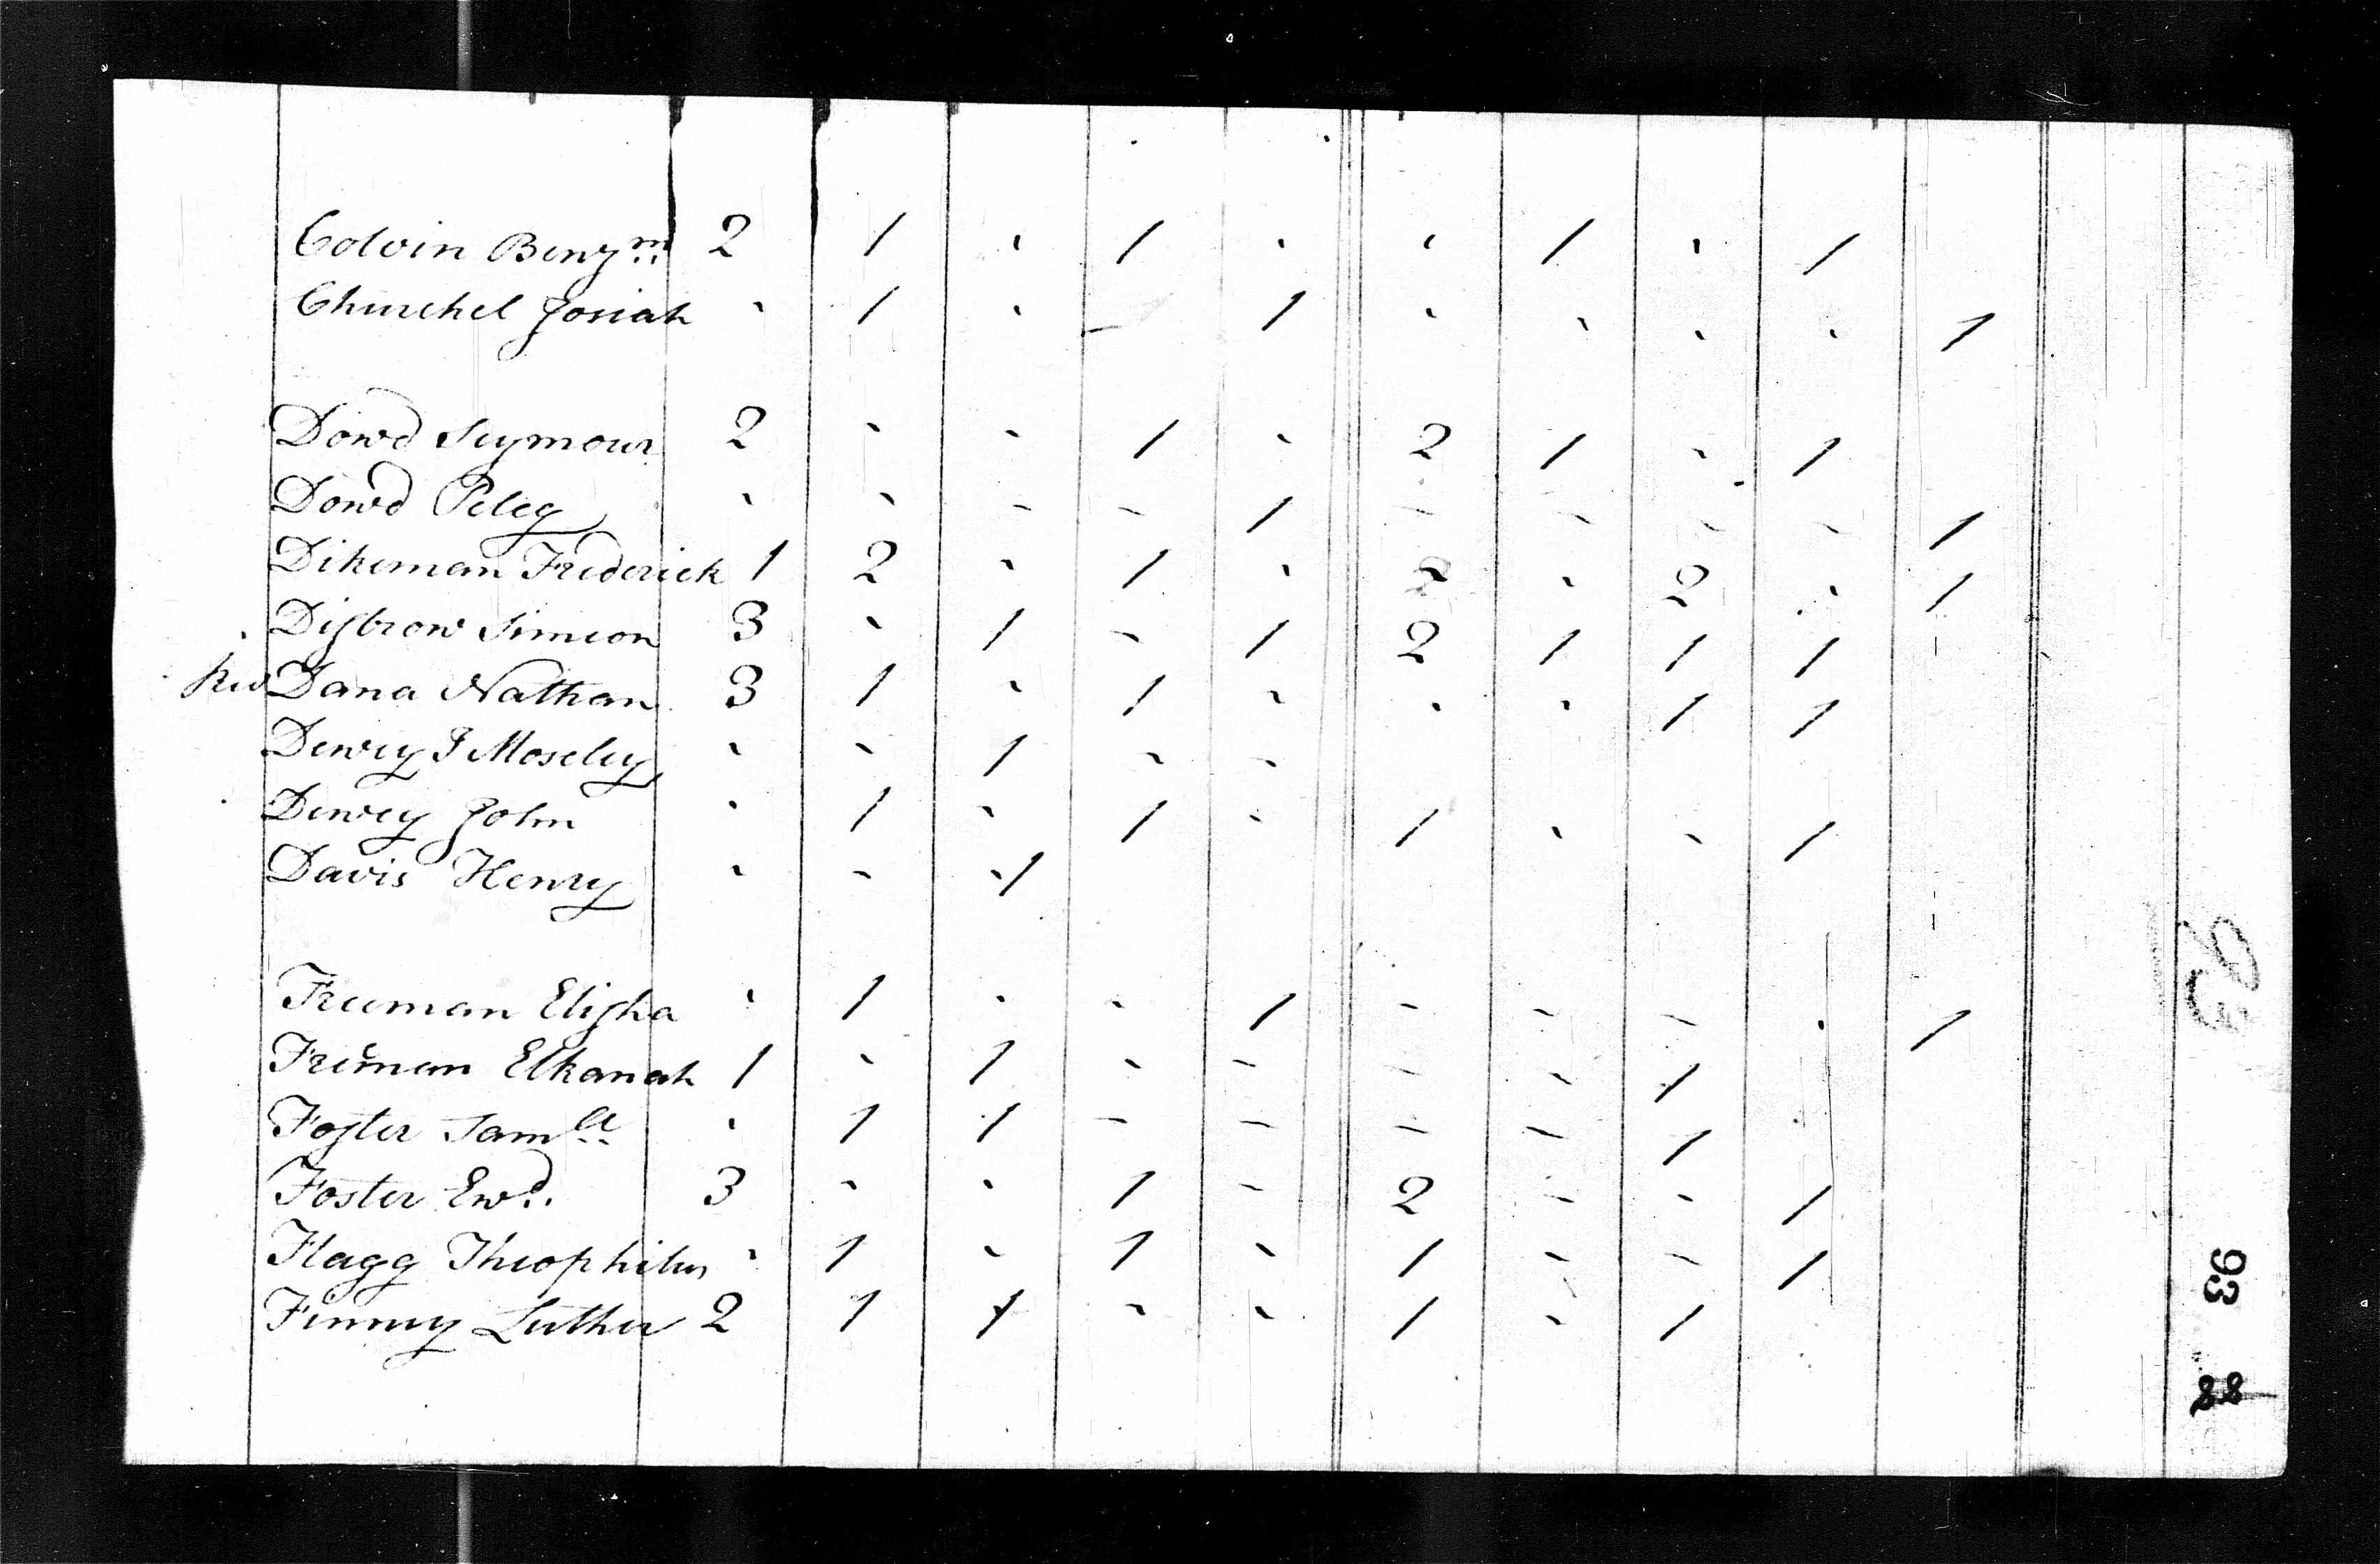 Colvin Benjm 2 1 - 1 - - 1 - 1
Churchel Josiah - 1 - - 1 - - - - 1
Dowd Seymour 2 - - 1 - 2 1 - 1
Dowd Peleg - - - - 1 - - - - 1
Dikeman Frederick 1 2 - 1 - 2 - 2 - 1
Disbrow Simeon 3 - 1 - 1 2 1 1 1
Rev Dana Nathan 3 1 - 1 - - - 1 1
Dewey J Moseley - - 1 - -
Dewey John - 1 - 1 - 1 - - 1
Davis Henry - - - 1
Freeman Elisha - 1 - - 1 - - - - 1
Freman Elkanah 1 - 1 - - - - 1
Foster Samll - 1 1 - - - - 1 -
Foster Ewd. 3 - - 1 - 2 - - 1
Flagg Theophilus - 1 - 1 - 1 - - 1
Finney Luther 2 1 1 - - 1 - 1
93
88